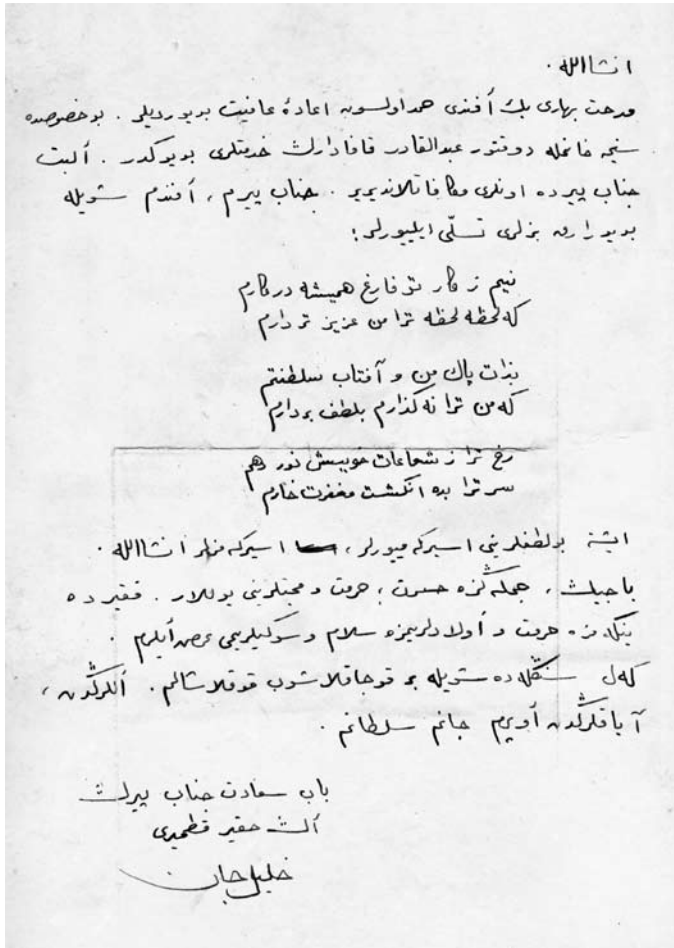 انشاالله .
مدحت بهاری بك أفندی حمد اولسون اعادۀ عافیت بویوردیلر . بو خصوصده
سنیحه خانمله دوقتور عبدالقادر قافادارك خدمتلری بویوكدر . ألبت
جناب پیرده اونلری مكافاتلاندیریر . جناب پیرم ، أفندم شویله
بویوراراق بزلری تسلّی ایلییورلر :
نیم ز كار تو فارغ همیشه در كارم
كه لحظه لحظه ترا من عزیز تر دارم
بذات پاك من و آفتاب سلطنتم
كه من ترا نه گذارم بلطف بردارم
رخ ترا ز شعاعات خویش نور دهم
سر ترا بده انگشت مغفرت خارم
ایشته بو لطفلرینی اسیرگه میورلر ، اسیرگه مزلر انشاالله .
باجیلر ، جمله گزه حسرت ، حرمت و محبتلرینی یوللار . فقیر ده
ینگه مزه حرمت و أولادلریمزه سلام و سوگیلریمی عرض أیلرم .
گه ل شیگله ده شویله بر قوجاقلاشوب قوقلاشالم . ألگزدن ،
آیاقلرگدن أوپرم جانم سلطانم .
باب سعادت جناب پیرك
ألك حقیر قطمیری
خلیل جان